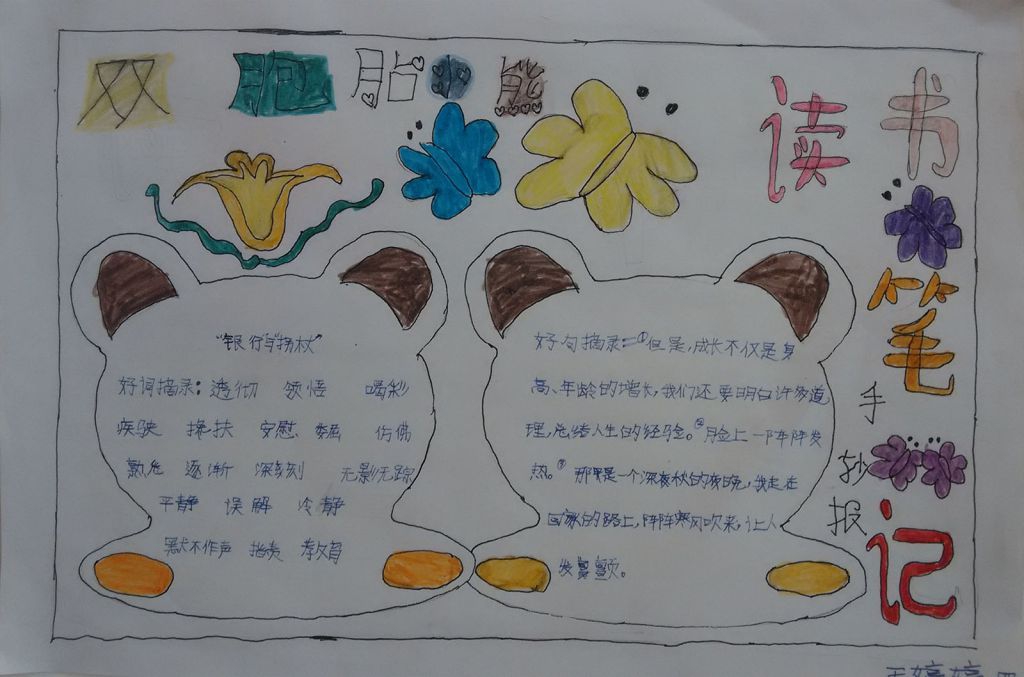 双胞胎小熊
读书
笔
记
手
抄
报
“银行”与“拐杖”
好词摘录：透彻 领悟 喝彩
疾驶 搀扶 安慰 仿佛
熟悉 逐渐 深刻 无影无踪
平静 误解 冷静
默不作声 指责 教育
好句摘录：①但是，成长不仅是身
高、年龄的增长，我们还要明白许多道
理，总结人生的经验。②脸上一阵阵发
热。③那是一个深秋的夜晚，我走在
回家的路上，阵阵寒风吹来，让人
发颤。
王婷婷